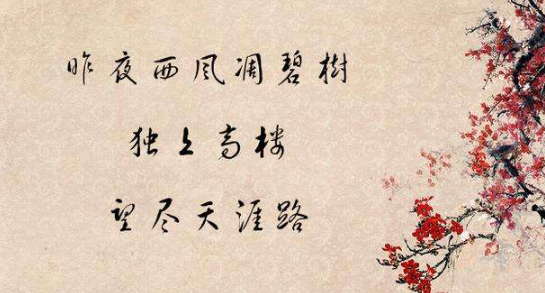 昨夜西风凋碧樹
独上高楼
望尽天涯路